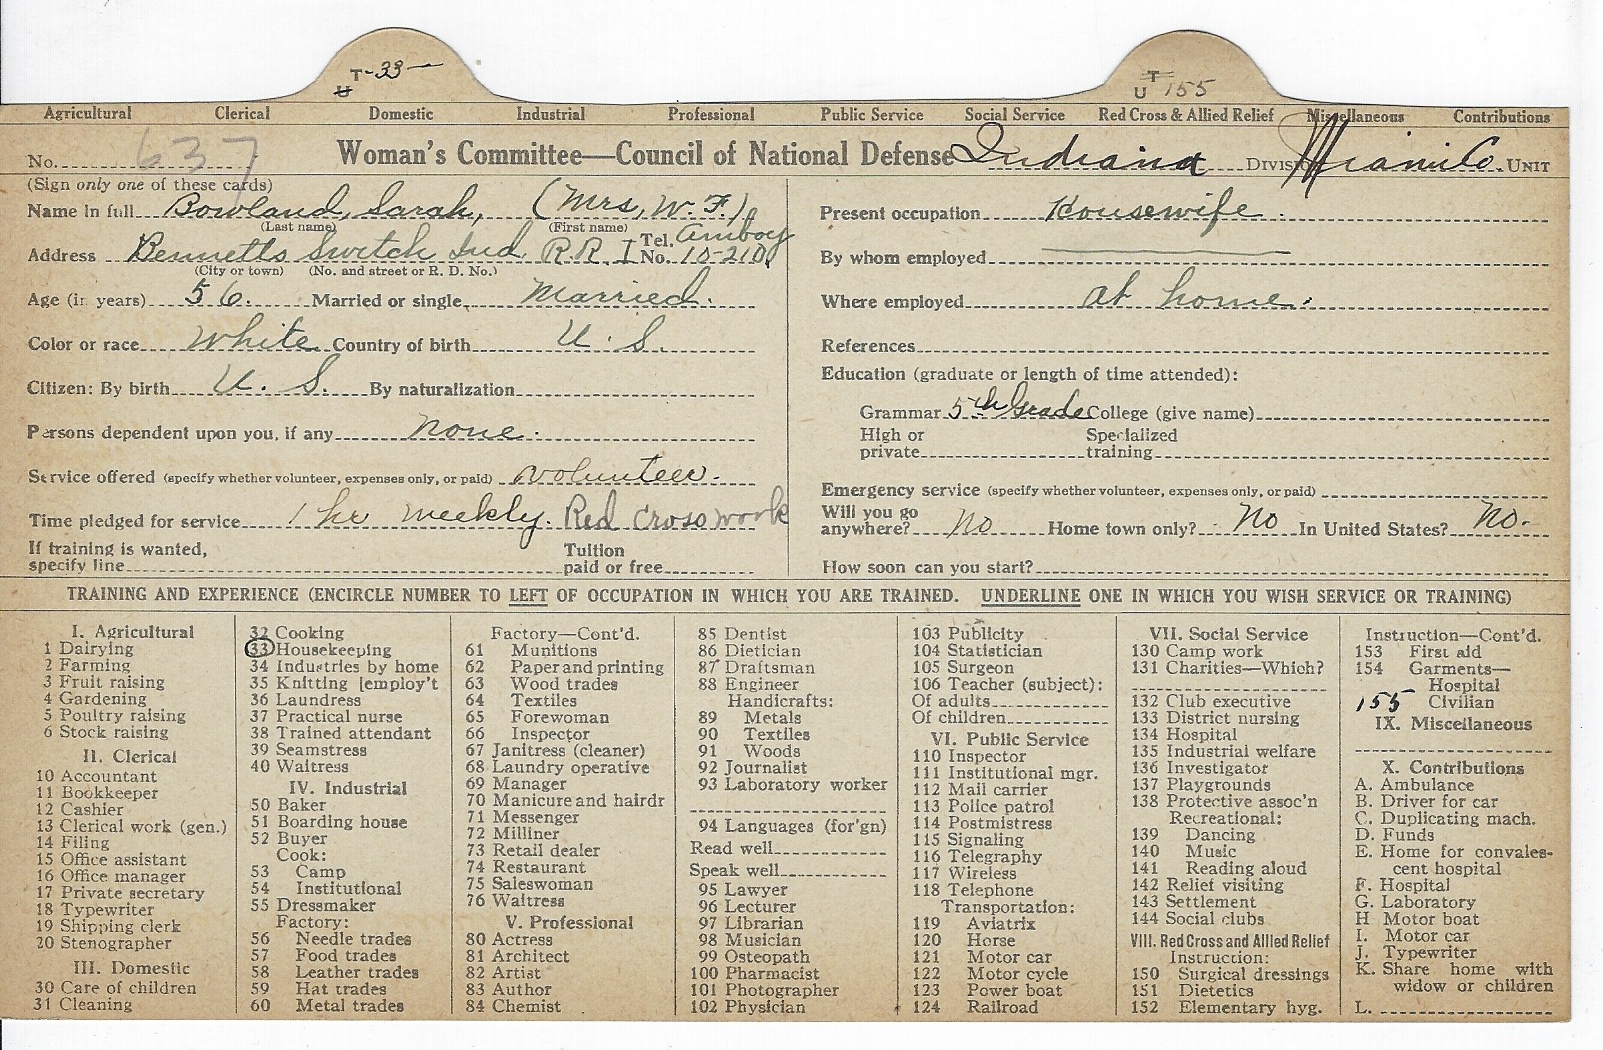 T-33-
U
T
U 155
Agricultural Clerical Domestic Industrial Professional Public Service Social Service Red Cross & Allied Relief Miscellaneous Contributions
No. 637 Woman's Committee—Council of National Defense Indiana DIVISION Miami Co. UNIT
(Sign only one of these cards)
Name in full Bowland, Sarah, (Mrs, W. F.)
(Last name) (First name)
Address Bennetts Switch Ind R.R. 1 Tel. No. Amboy 10-210
(City or town) (No. and street or R. D. No.)
Age (in years) 56. Married or single Married.
Color or race White Country of birth U. S.
Citizen: By birth U. S. By naturalization
Persons dependent upon you, if any none.
Service offered (specify whether volunteer, expenses only, or paid) volunteer.
Time pledged for service 1 hr weekly. Red Cross work
If training is wanted, specify line Tuition paid or free
Present occupation Housewife.
By whom employed
Where employed at home.
References
Education (graduate or length of time attended):
Grammar 5th Grade College (give name)
High or private Specialized training
Emergency service (specify whether volunteer, expenses only, or paid)
Will you go anywhere? No Home town only? No In United States? No.
How soon can you start?
TRAINING AND EXPERIENCE (ENCIRCLE NUMBER TO LEFT OF OCCUPATION IN WHICH YOU ARE TRAINED. UNDERLINE ONE IN WHICH YOU WISH SERVICE OR TRAINING)
I. Agricultural
1 Dairying
2 Farming
3 Fruit raising
4 Gardening
5 Poultry raising
6 Stock raising
II. Clerical
10 Accountant
11 Bookkeeper
12 Cashier
13 Clerical work (gen.)
14 Filing
15 Office assistant
16 Office manager
17 Private secretary
18 Typewriter
19 Shipping clerk
20 Stenographer
III. Domestic
30 Care of children
31 Cleaning
32 Cooking
33 Housekeeping
34 Industries by home
35 Knitting [employ't
36 Laundress
37 Practical nurse
38 Trained attendant
39 Seamstress
40 Waitress
IV. Industrial
50 Baker
51 Boarding house
52 Buyer
Cook:
53 Camp
54 Institutional
55 Dressmaker
Factory:
56 Needle trades
57 Food trades
58 Leather trades
59 Hat trades
60 Metal trades
Factory—Cont'd.
61 Munitions
62 Paper and printing
63 Wood trades
64 Textiles
65 Forewoman
66 Inspector
67 Janitress (cleaner)
68 Laundry operative
69 Manager
70 Manicure and hairdr
71 Messenger
72 Milliner
73 Retail dealer
74 Restaurant
75 Saleswoman
76 Waitress
V. Professional
80 Actress
81 Architect
82 Artist
83 Author
84 Chemist
85 Dentist
86 Dietician
87 Draftsman
88 Engineer
Handicrafts:
89 Metals
90 Textiles
91 Woods
92 Journalist
93 Laboratory worker
94 Languages (for'gn)
Read well
Speak well
95 Lawyer
96 Lecturer
97 Librarian
98 Musician
99 Osteopath
100 Pharmacist
101 Photographer
102 Physician
103 Publicity
104 Statistician
105 Surgeon
106 Teacher (subject):
Of adults
Of children
VI. Public Service
110 Inspector
111 Institutional mgr.
112 Mail carrier
113 Police patrol
114 Postmistress
115 Signaling
116 Telegraphy
117 Wireless
118 Telephone
Transportation:
119 Aviatrix
120 Horse
121 Motor car
122 Motor cycle
123 Power boat
124 Railroad
VII. Social Service
130 Camp work
131 Charities—Which?
132 Club executive
133 District nursing
134 Hospital
135 Industrial welfare
136 Investigator
137 Playgrounds
138 Protective assoc'n
Recreational:
139 Dancing
140 Music
141 Reading aloud
142 Relief visiting
143 Settlement
144 Social clubs
VIII. Red Cross and Allied Relief
Instruction:
150 Surgical dressings
151 Dietetics
152 Elementary hyg.
Instruction—Cont'd.
153 First aid
154 Garments—
Hospital
155 Civilian
IX. Miscellaneous
X. Contributions
A. Ambulance
B. Driver for car
C. Duplicating mach.
D. Funds
E. Home for convales-
cent hospital
F. Hospital
G. Laboratory
H Motor boat
I. Motor car
J. Typewriter
K. Share home with
widow or children
L.